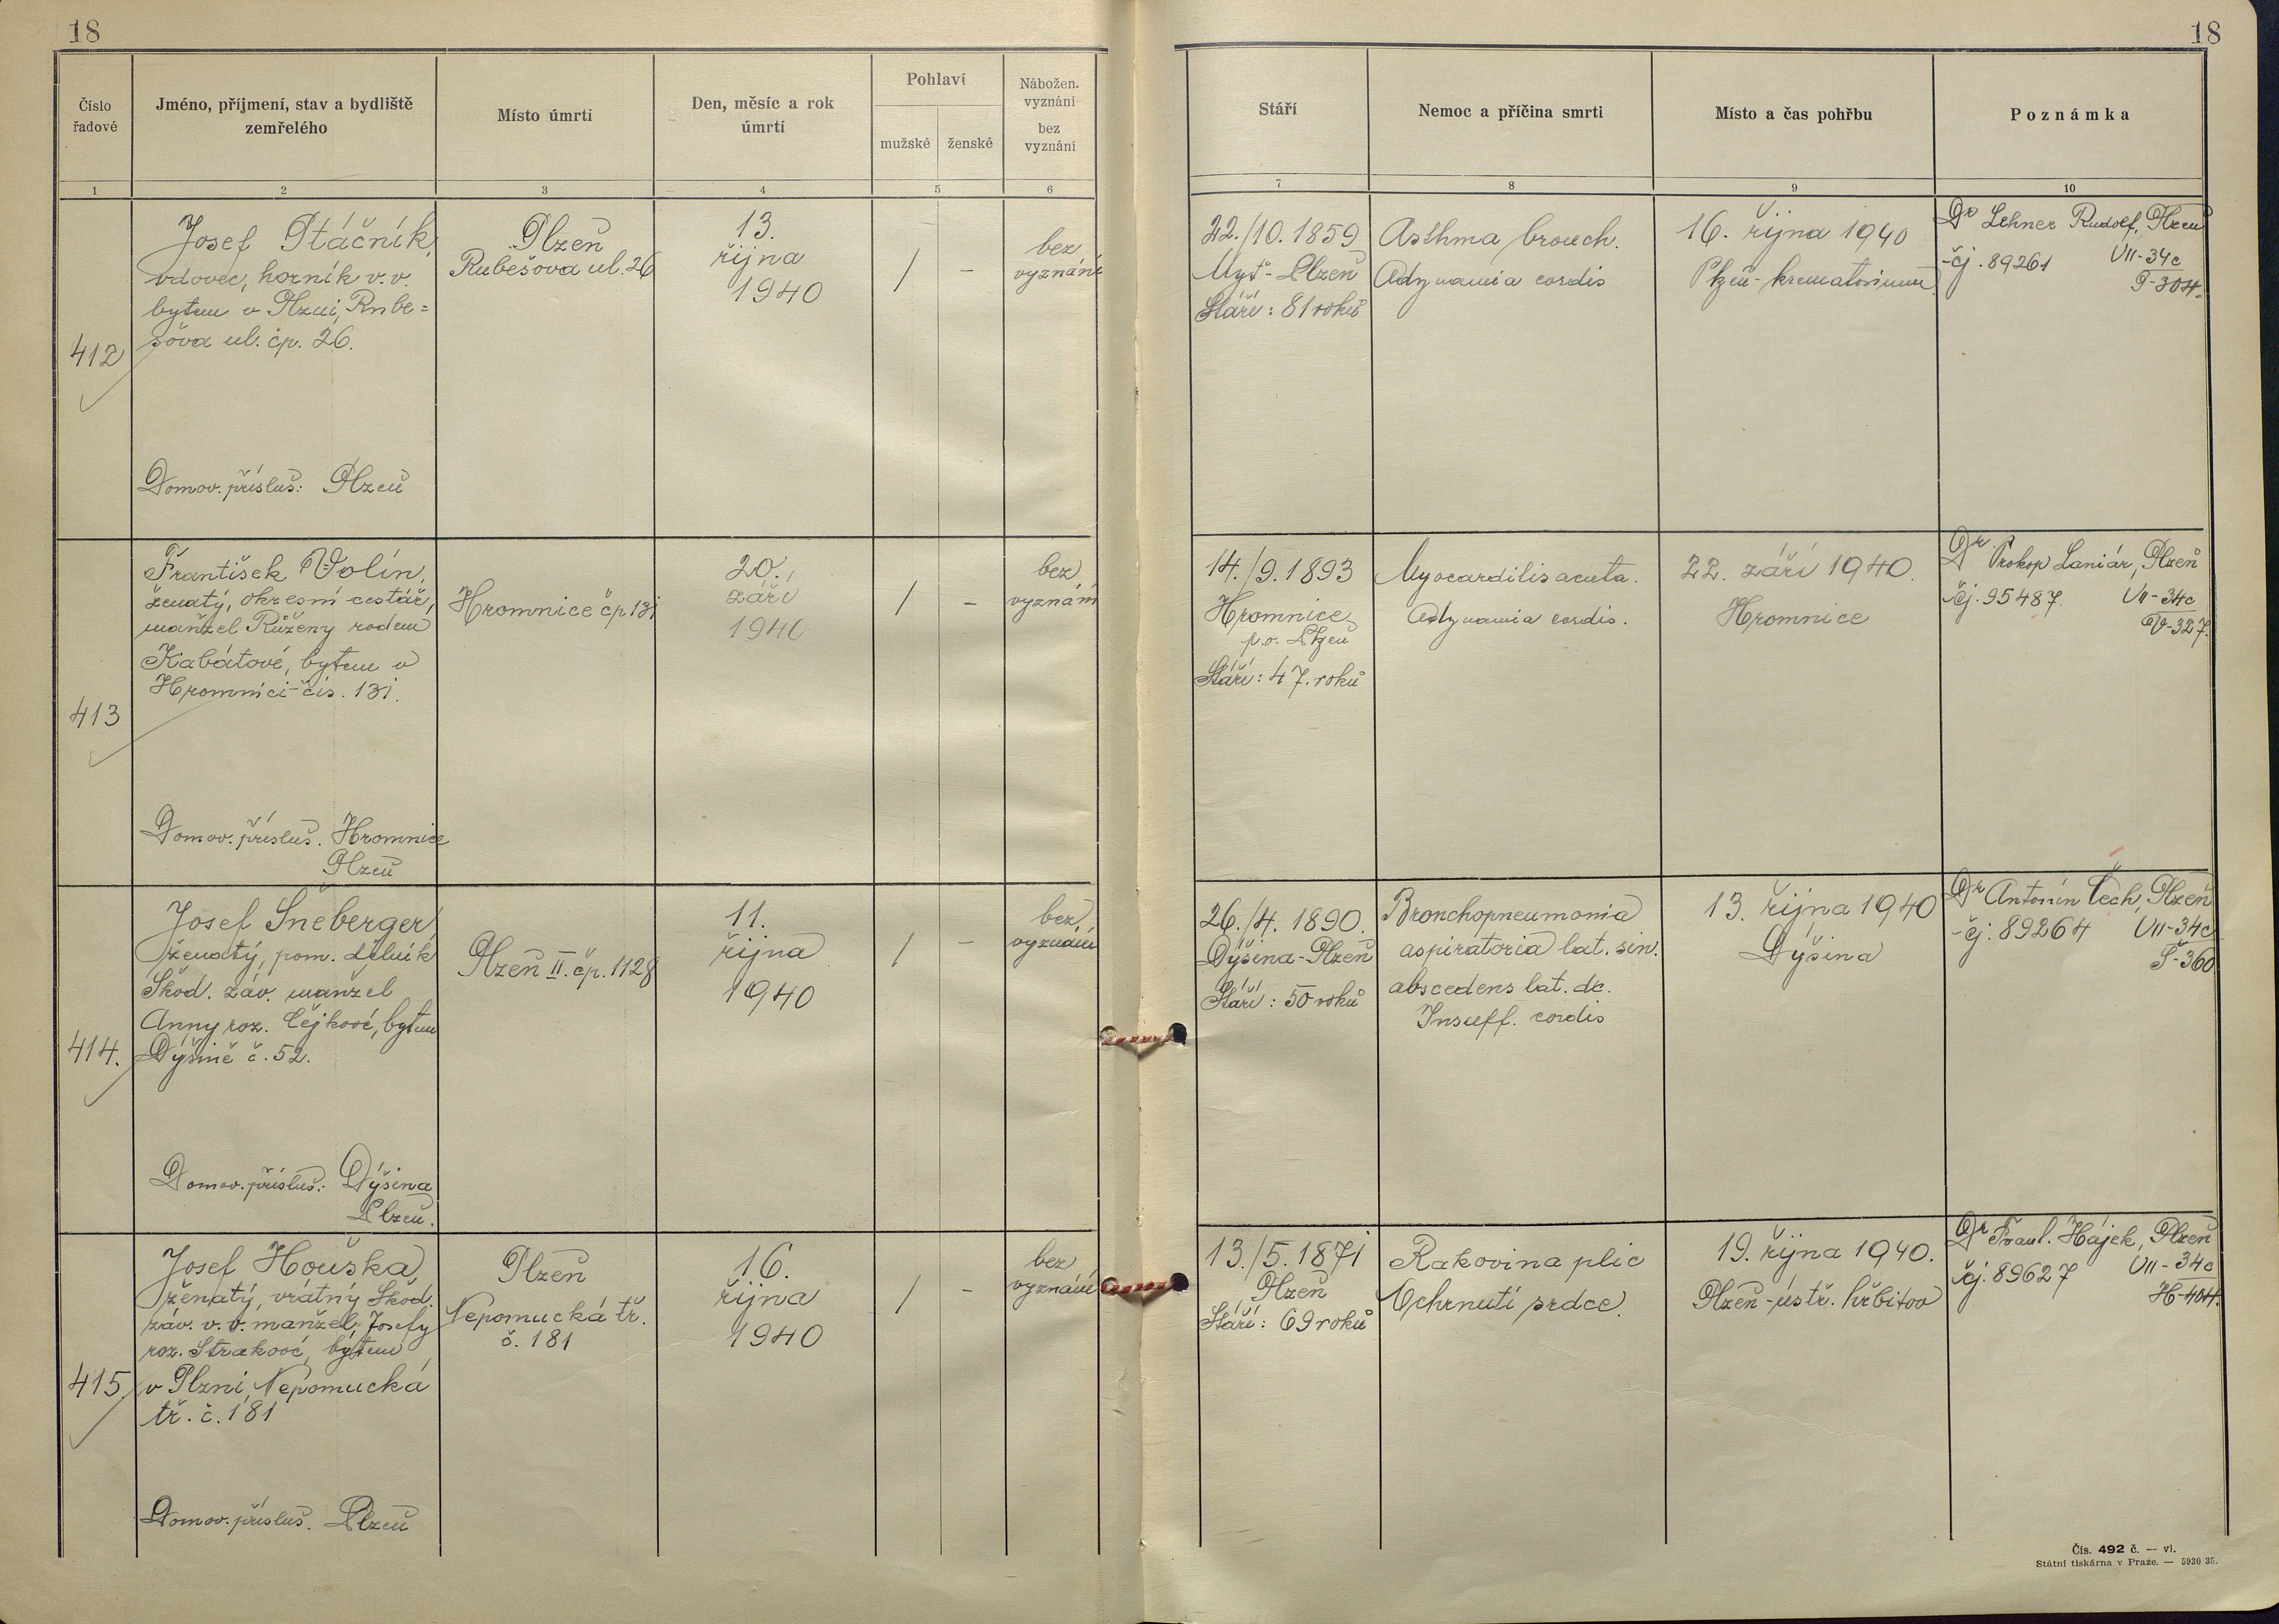 18
18
Číslo
řadové
Jméno, příjmení, stav a bydliště
zemřelého
Místo úmrtí
Den, měsíc a rok
úmrtí
Pohlaví
mužské
ženské
Nábožen.
vyznání
bez
vyznání
Stáří
Nemoc a příčina smrti
Místo a čas pohřbu
Poznámka
1
2
3
4
5
6
7
8
9
10
412
Josef Ptáčník,
vdovec, horník v. v.
bytem v Plzni, Rube=
šova ul. čp. 26.
Domov. přísluš.: Plzeň
Plzeň
Rubešova ul. 26
13.
října
1940
/
-
bez
vyznání
22./10. 1859
Plzeň
Stáří: 81 roků
Asthma bronch.
Adynamia cordis
16. října 1940
Plzeň - krematorium
Dr Lehner Rudolf, Plzeň
čj. 89261
VII-34c
P-304.
413
František Volín,
ženatý, okresní cestář,
manžel Růženy rodem
Kabátové, bytem v
Hromnici čís. 131.
Domov. přísluš. Hromnice
Plzeň
Hromnice čp 131
20.
září
1940
/
-
bez
vyznání
14./9. 1893
Hromnice
p. o. Plzeň
Stáří: 47. roků
Myocarditis acuta.
Adynamia cordis.
22. září 1940.
Hromnice
Dr Prokop Laniár, Plzeň
čj. 95487.
VII-34c
V-327.
414.
Josef Šneberger,
ženatý, pom. dělník
Škod. záv. manžel
Anny roz. Čejkové, bytem
Dýšině č. 52.
Domov. přísluš.: Dýšina
Plzeň.
Plzeň II. čp. 1128
11.
října
1940
/
-
bez
vyznání
26./4. 1890.
Dýšina - Plzeň
Stáří: 50 roků
Bronchopneumonia
aspiratoria lat. sin.
abscedens lat. dc.
Insuff. cordis
13. října 1940
Dýšina
Dr Antonín Čech, Plzeň
čj. 89264
VII-34c
Š-360
415
Josef Houška
ženatý, vrátný Škod.
záv. v. v. manžel Josefy
roz. Strakové, bytem
v Plzni, Nepomucká
tř. č. 181
Domov. přísluš. Plzeň
Plzeň
Nepomucká tř.
č. 181
16.
října
1940
/
-
bez
vyznání
13./5. 1871
Plzeň
Stáří: 69 roků
Rakovina plic
Ochrnutí srdce.
19. října 1940.
Plzeň - ústř. hřbitov
Dr Frant. Hájek, Plzeň
čj. 89627
VII-34c
H-404.
Čís. 492 č. — vl.
Státní tiskárna v Praze. — 5930 35.